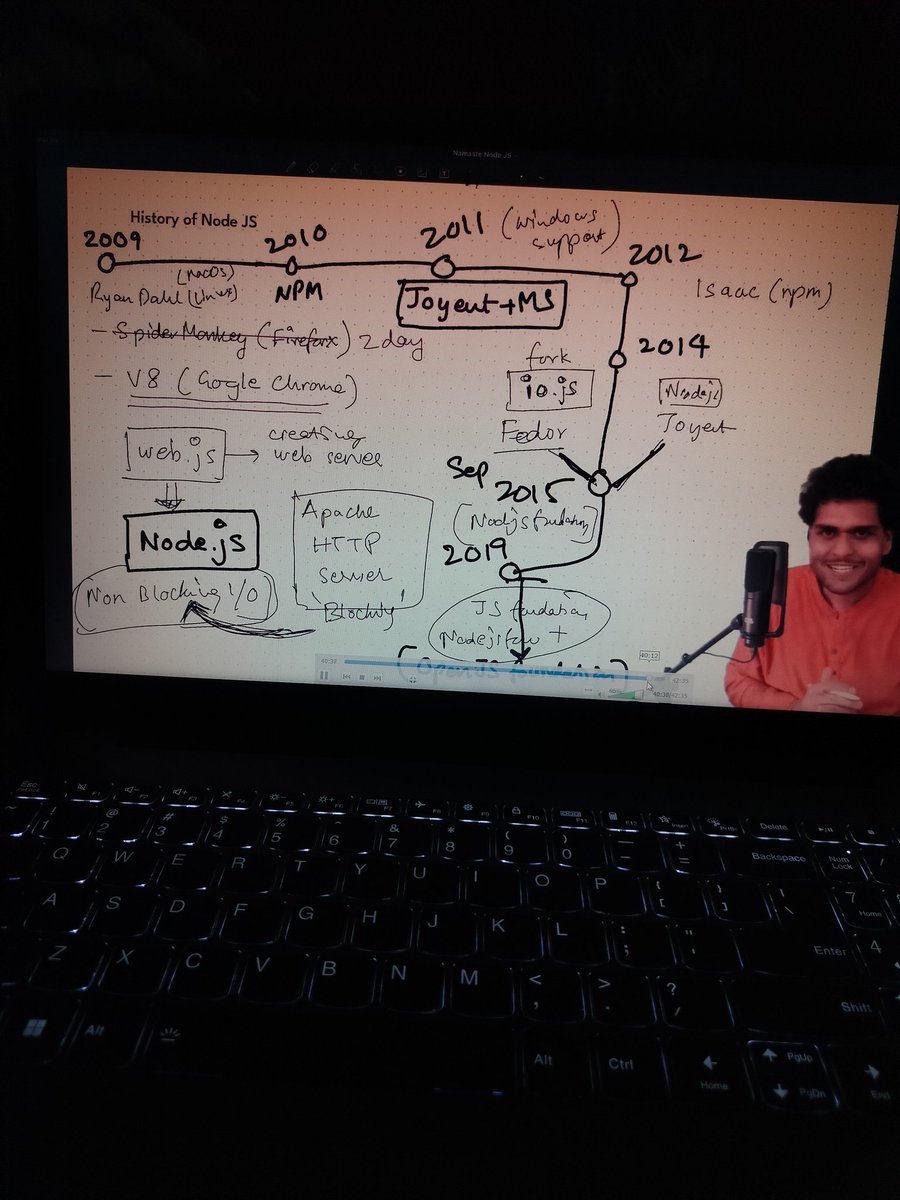 Namaste Node JS
History of Node JS
2009
2010
2011 (windows support)
2012
(macOS)
Ryan Dahl (Linux)
NPM
Joyent + MS
Isaac (npm)
- Spider Monkey (Firefox) 2 day
- V8 (Google Chrome)
2014
fork
io.js
Nodejs
Fedor
Joyent
web.js
creating
web server
Sep 2015
(Nodejs foundation)
2019
Node.js
Apache
HTTP
Server
Blocking
Non Blocking I/O
JS foundation
+
40:12
40:38
42:35
40:38/42:35
Esc F1 F2 F3 F4 F5 F6 F7 F8 F9 F10 F11 F12 Delete
~ ! 1 @ 2 # 3 $ 4 % 5 ^ 6 & 7 * 8 ( 9 ) 0 _ - + = Backspace Num Lock /
Q W E R T Y U I O P { [ } ] | \ 7 Home
A S D F G H J K L : ; " ' Enter 4
Z X C V B N M < , > . ? / Shift
Alt Alt Ctrl Home PgUp PgDn End